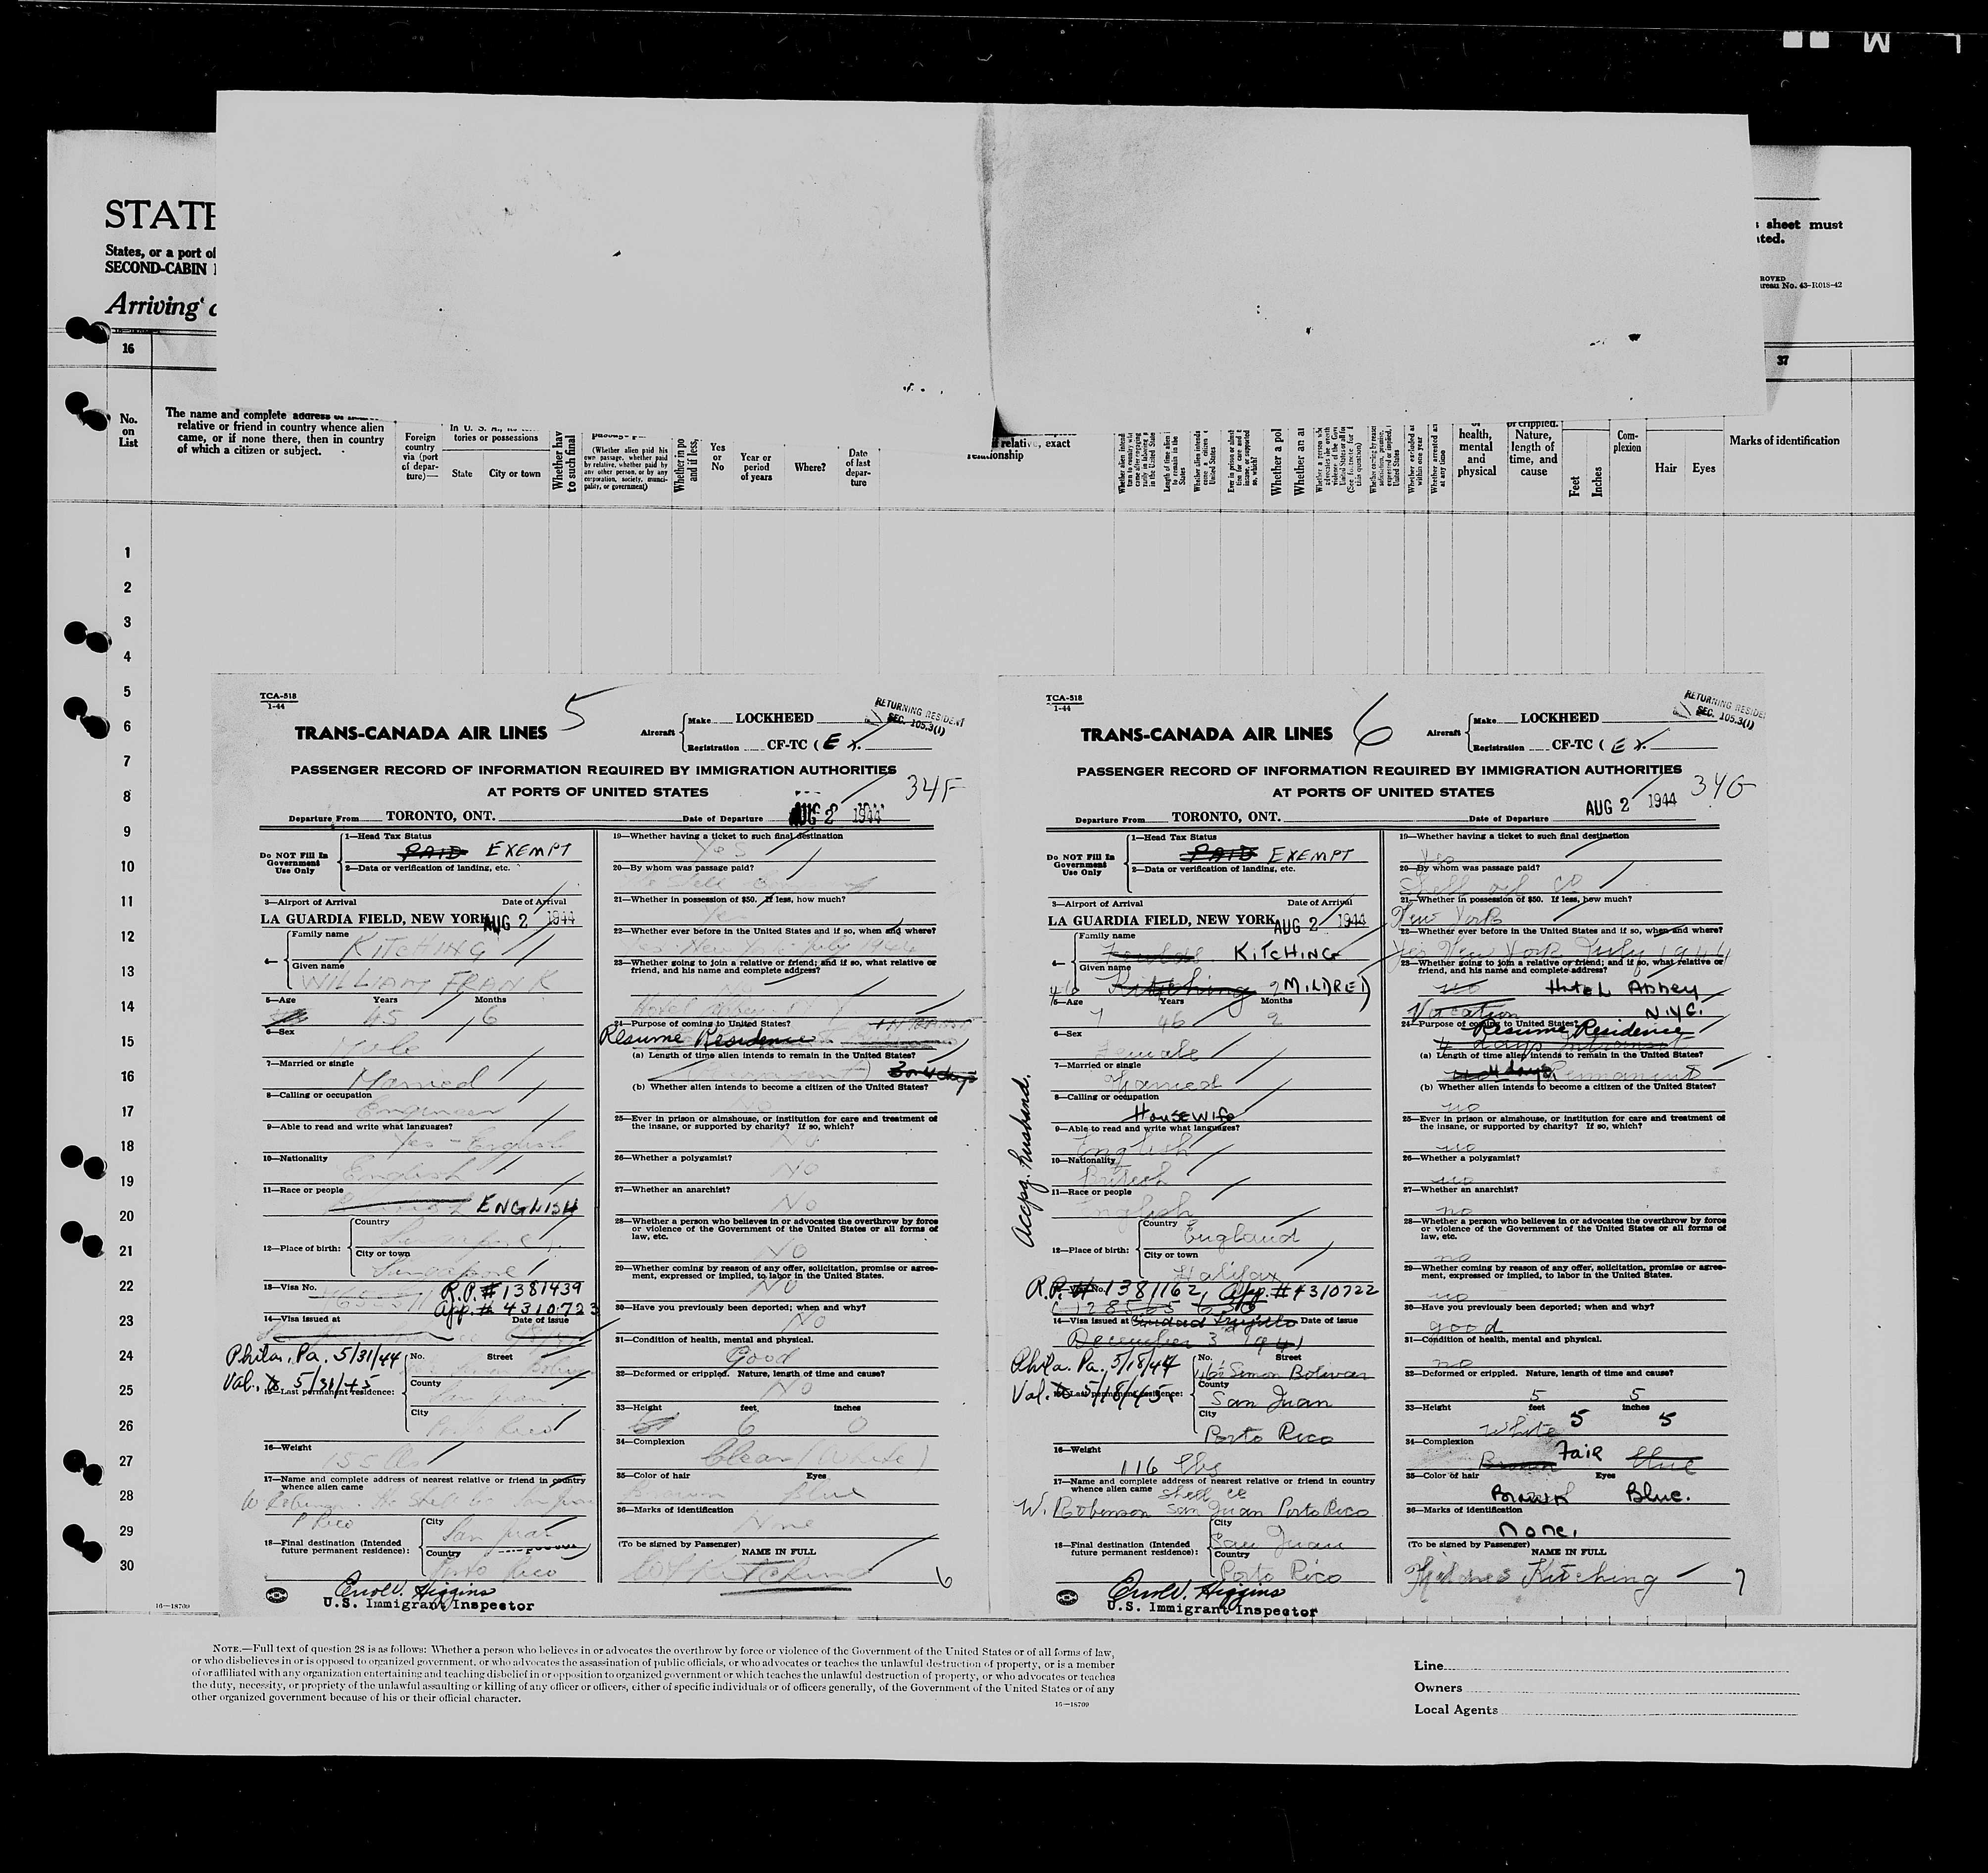 M
STATE
States, or a port of
SECOND-CABIN
Arriving
s sheet must
ated.
ROVED
ureau No. 43-R018-42
16
37
No.
on
List
The name and complete address of
relative or friend in country whence alien
came, or if none there, then in country
of which a citizen or subject.
Foreign
country
via (port
of depar-
ture)—
tories or possessions
State
City or town
Whether hav
to such final
(Whether alien paid his
own passage, whether paid
by relative, whether paid by
any other person, or by any
corporation, society, munici-
pality, or government)
Whether in po
and if less,
Yes
or
No
Year or
period
of years
Where?
Date
of last
depar-
ture
f relative, exact
relationship
Whether a pol
Whether an a
health,
mental
and
physical
or crippled.
Nature,
length of
time, and
cause
Feet
Inches
Com-
plexion
Hair
Eyes
Marks of identification
1
2
3
4
5
6
7
8
9
10
11
12
13
14
15
16
17
18
19
20
21
22
23
24
25
26
27
28
29
30
TCA-518
1-44
5
TRANS-CANADA AIR LINES
Aircraft
Make LOCKHEED
Registration CF-TC ( EX.
RETURNING RESIDENT
SEC. 105.3(1)
PASSENGER RECORD OF INFORMATION REQUIRED BY IMMIGRATION AUTHORITIES
AT PORTS OF UNITED STATES
34F
Departure From TORONTO, ONT.
Date of Departure AUG 2 1944
Do NOT Fill In
Government
Use Only
1—Head Tax Status
PAID EXEMPT
2—Data or verification of landing, etc.
3—Airport of Arrival
Date of Arrival
LA GUARDIA FIELD, NEW YORK AUG 2 1944
4—
Family name
KITCHING
Given name
WILLIAM FRANK
5—Age Years Months
45 6
6—Sex
Male
7—Married or single
Married
8—Calling or occupation
Engineer
9—Able to read and write what languages?
Yes - English
10—Nationality
English
11—Race or people
ENGLISH
12—Place of birth:
Country
Singapore
City or town
Singapore
13—Visa No.
R.P. # 1381439
App. # 4310723
14—Visa issued at Date of issue
Phila, Pa. 5/31/44
Val. to 5/31/45
15—Last permanent residence:
No. Street
County
San Juan
City
Porto Rico
16—Weight
155 lbs
17—Name and complete address of nearest relative or friend in country
whence alien came
P Rico
18—Final destination (Intended
future permanent residence):
City
San Juan
Country
Porto Rico
Errol V. Higgins
U.S. Immigrant Inspector
19—Whether having a ticket to such final destination
Yes
20—By whom was passage paid?
21—Whether in possession of $50. If less, how much?
Yes
22—Whether ever before in the United States and if so, when and where?
Yes. New York July 1944
23—Whether going to join a relative or friend; and if so, what relative or
friend, and his name and complete address?
No
24—Purpose of coming to United States?
Resume Residence
(a) Length of time alien intends to remain in the United States?
(Permanent) 3 or 4 days
(b) Whether alien intends to become a citizen of the United States?
No
25—Ever in prison or almshouse, or institution for care and treatment of
the insane, or supported by charity? If so, which?
No
26—Whether a polygamist?
No
27—Whether an anarchist?
No
28—Whether a person who believes in or advocates the overthrow by force
or violence of the Government of the United States or all forms of
law, etc.
No
29—Whether coming by reason of any offer, solicitation, promise or agree-
ment, expressed or implied, to labor in the United States.
No
30—Have you previously been deported; when and why?
No
31—Condition of health, mental and physical.
Good
32—Deformed or crippled. Nature, length of time and cause?
No
33—Height feet inches
6 0
34—Complexion
Clear (White)
35—Color of hair Eyes
Brown Blue
36—Marks of identification
None
(To be signed by Passenger) NAME IN FULL
W F Kitching
6
TCA-518
1-44
6
TRANS-CANADA AIR LINES
Aircraft
Make LOCKHEED
Registration CF-TC ( EX.
RETURNING RESIDE
SEC. 105.3(1)
PASSENGER RECORD OF INFORMATION REQUIRED BY IMMIGRATION AUTHORITIES
AT PORTS OF UNITED STATES
34G
Departure From TORONTO, ONT.
Date of Departure AUG 2 1944
Do NOT Fill In
Government
Use Only
1—Head Tax Status
PAID EXEMPT
2—Data or verification of landing, etc.
3—Airport of Arrival
Date of Arrival
LA GUARDIA FIELD, NEW YORK AUG 2 1944
4—
Family name
KITCHING
Given name
Kitching MILDRED
5—Age Years Months
46 2
6—Sex
Female
7—Married or single
Married
8—Calling or occupation
Housewife
9—Able to read and write what languages?
English
10—Nationality
British
11—Race or people
English
Accpg. husband.
12—Place of birth:
Country
England
City or town
Halifax
13—Visa No.
R.P. # 1381162, App. # 4310722
14—Visa issued at Ciudad Trujillo Date of issue
December 3 1941
Phila. Pa. 5/18/44
Val. to 5/18/45.
15—Last permanent residence:
No. Street
Simon Bolivar
County
San Juan
City
Porto Rico
16—Weight
116 lbs
17—Name and complete address of nearest relative or friend in country
whence alien came Shell Co
W. Robinson San Juan Porto Rico
18—Final destination (Intended
future permanent residence):
City
San Juan
Country
Porto Rico
Errol V. Higgins
U.S. Immigrant Inspector
19—Whether having a ticket to such final destination
Yes
20—By whom was passage paid?
Shell Oil Co
21—Whether in possession of $50. If less, how much?
New York
22—Whether ever before in the United States and if so, when and where?
Yes New York July 1944
23—Whether going to join a relative or friend; and if so, what relative or
friend, and his name and complete address?
no Hotel Abbey
Vacation N.Y.C.
24—Purpose of coming to United States?
Resume Residence
4 days Intransit
(a) Length of time alien intends to remain in the United States?
4 days Permanent
(b) Whether alien intends to become a citizen of the United States?
no
25—Ever in prison or almshouse, or institution for care and treatment of
the insane, or supported by charity? If so, which?
no
26—Whether a polygamist?
no
27—Whether an anarchist?
no
28—Whether a person who believes in or advocates the overthrow by force
or violence of the Government of the United States or all forms of
law, etc.
no
29—Whether coming by reason of any offer, solicitation, promise or agree-
ment, expressed or implied, to labor in the United States.
no
30—Have you previously been deported; when and why?
good
31—Condition of health, mental and physical.
no
32—Deformed or crippled. Nature, length of time and cause?
5 5
33—Height feet inches
White 5 5
34—Complexion
Brown Fair blue
35—Color of hair Eyes
Brown Blue.
36—Marks of identification
None.
(To be signed by Passenger) NAME IN FULL
Kitching
7
16—18709
NOTE.—Full text of question 28 is as follows: Whether a person who believes in or advocates the overthrow by force or violence of the Government of the United States or of all forms of law,
or who disbelieves in or is opposed to organized government, or who advocates the assassination of public officials, or who advocates or teaches the unlawful destruction of property, or is a member
of or affiliated with any organization entertaining and teaching disbelief in or opposition to organized government or which teaches the unlawful destruction of property, or who advocates or teaches
the duty, necessity, or propriety of the unlawful assaulting or killing of any officer or officers, either of specific individuals or of officers generally, of the Government of the United States or of any
other organized government because of his or their official character.
16—18709
Line
Owners
Local Agents